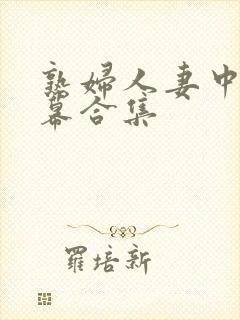 熟婦人妻中
幕合集
羅培新